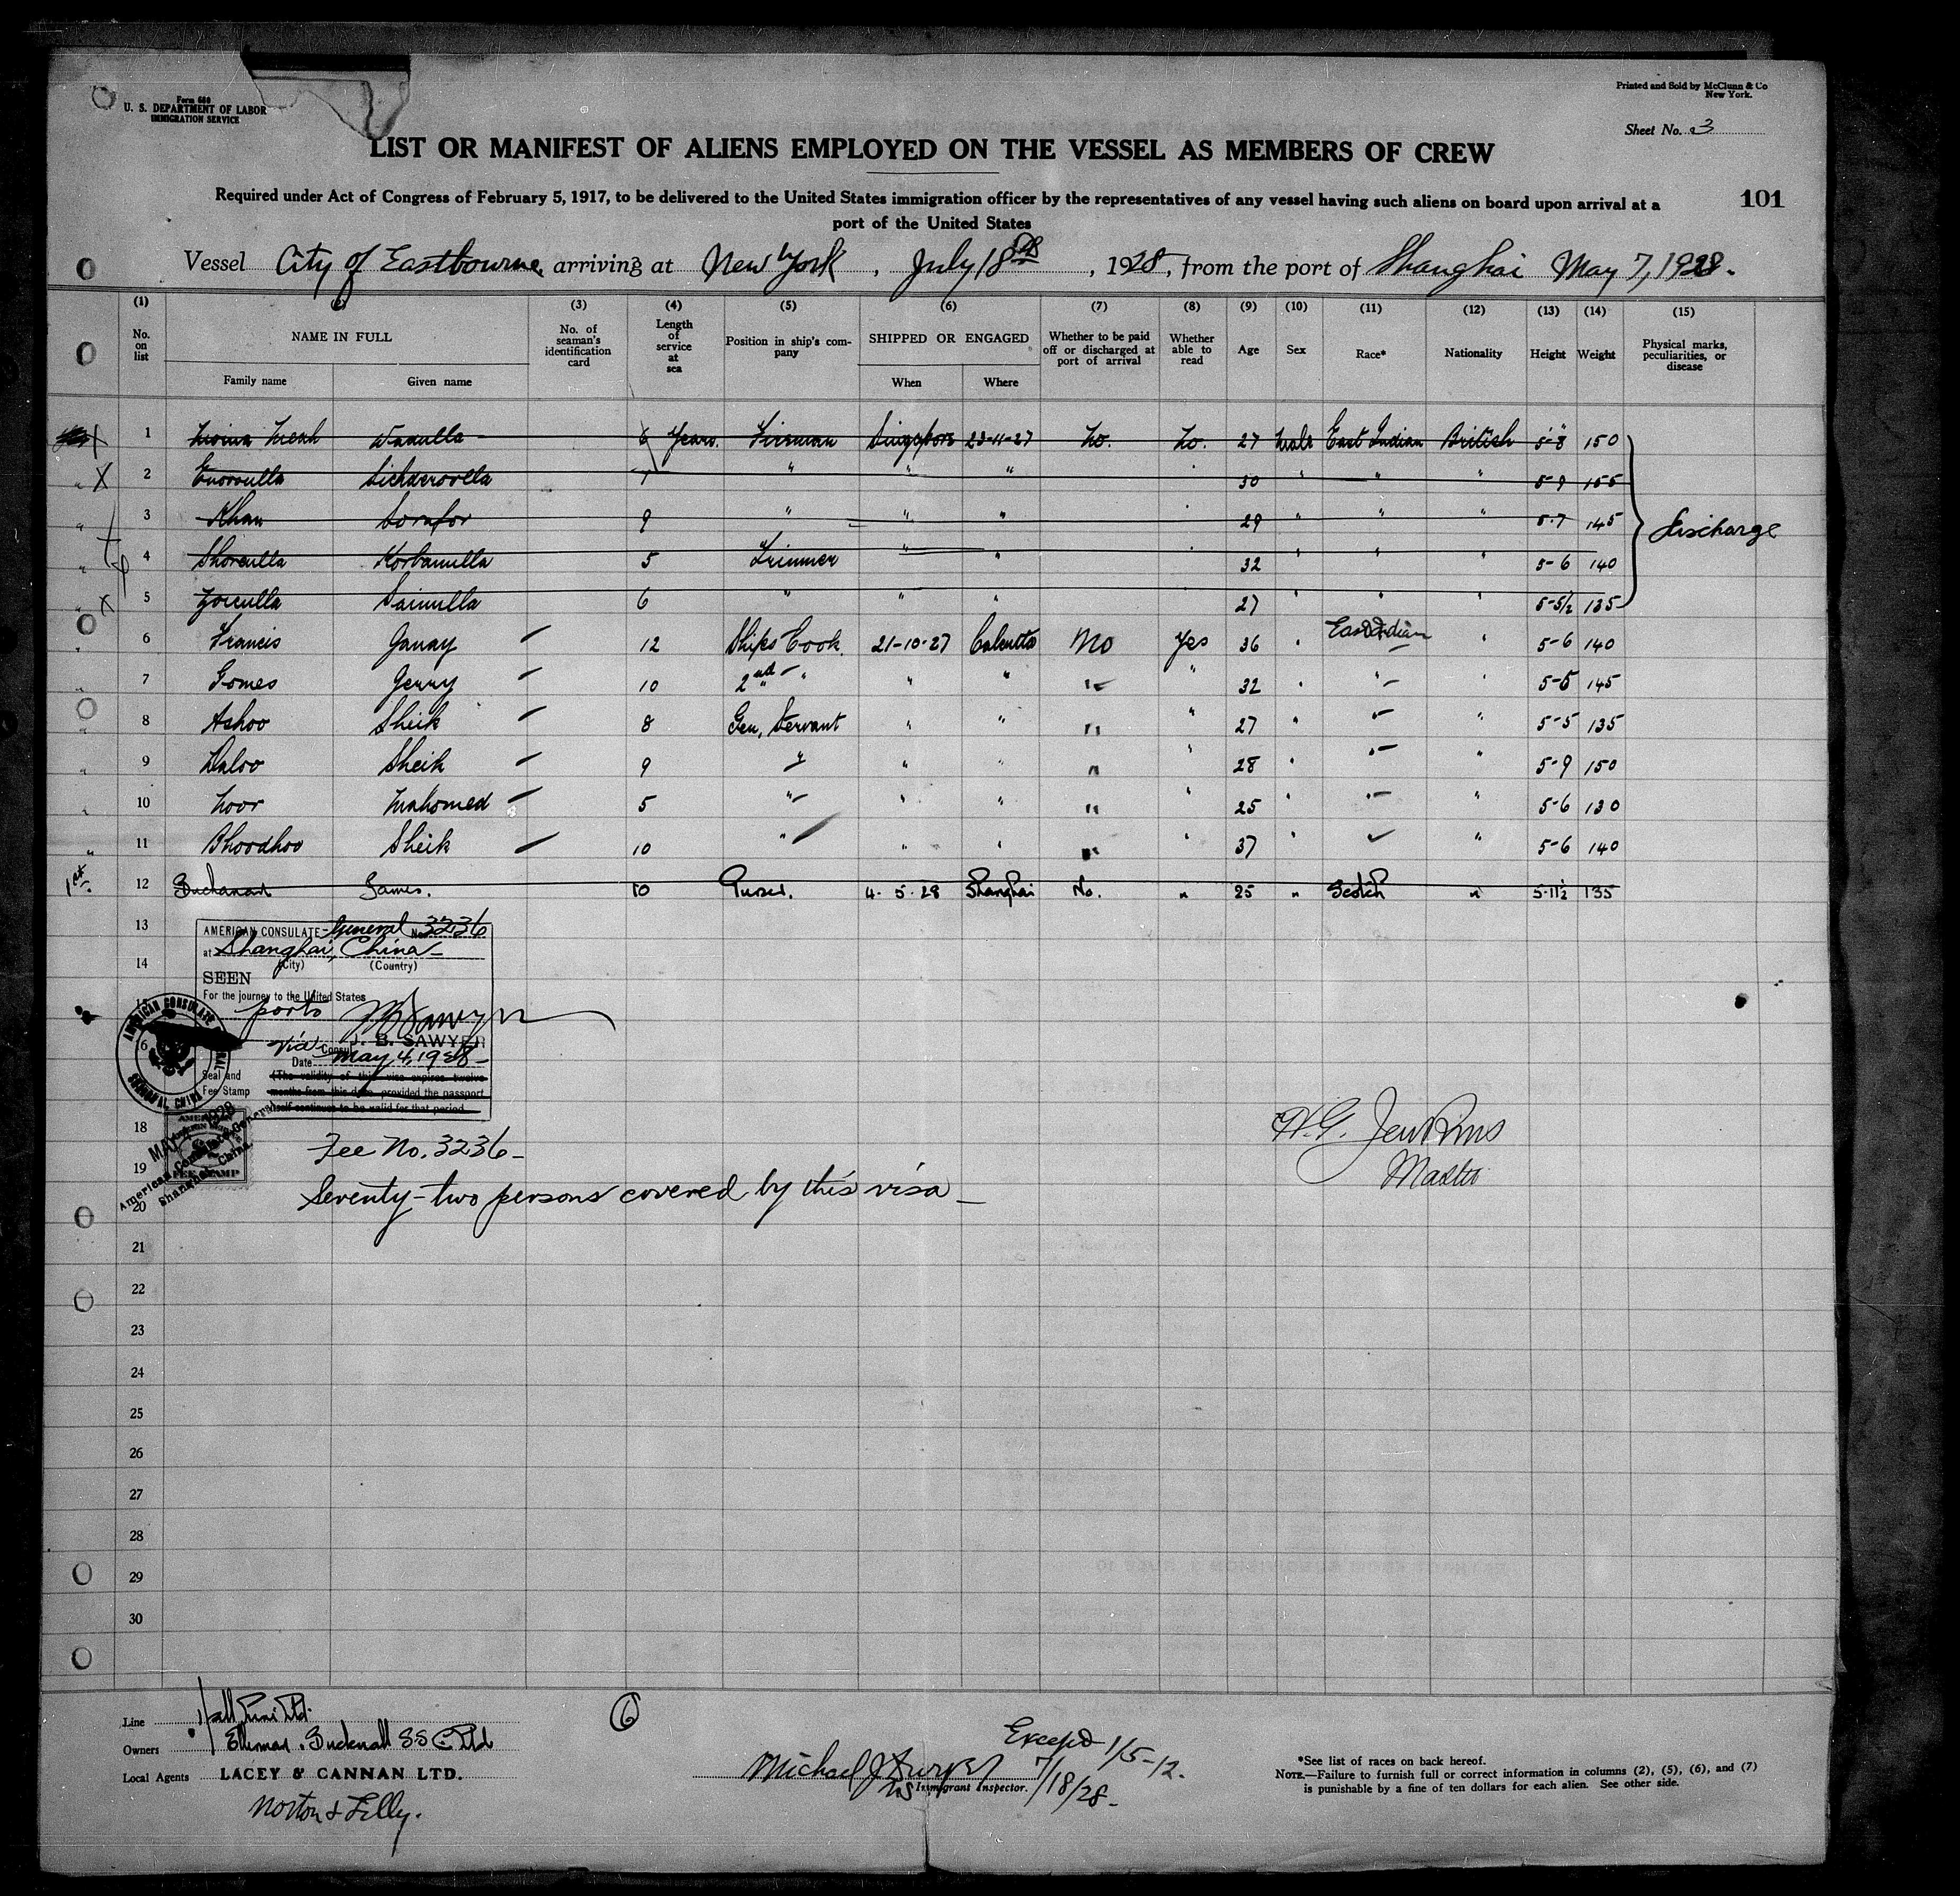 Form 680
U. S. DEPARTMENT OF LABOR
IMMIGRATION SERVICE
Printed and Sold by McClunn & Co
New York.
Sheet No. 3
LIST OR MANIFEST OF ALIENS EMPLOYED ON THE VESSEL AS MEMBERS OF CREW
Required under Act of Congress of February 5, 1917, to be delivered to the United States immigration officer by the representatives of any vessel having such aliens on board upon arrival at a
port of the United States
101
Vessel City of Eastbourne, arriving at New York, July 18th, 1928, from the port of Shanghai May 7, 1928.
(1) (2) (3) (4) (5) (6) (7) (8) (9) (10) (11) (12) (13) (14) (15)
No. on list NAME IN FULL No. of seaman's identification card Length of service at sea Position in ship's company SHIPPED OR ENGAGED Whether to be paid off or discharged at port of arrival Whether able to read Age Sex Race* Nationality Height Weight Physical marks, peculiarities, or disease
Family name Given name When Where
1 Meah Wasulla 6 years. Fireman Singapore 23-11-27 No. No. 27 Male East Indian British 5-8 150
2 " " " 30 " " " 5-9 155
3 Khan 9 " " " 29 " " " 5-7 145
4 Korbanulla 5 Trimmer " " 32 " " " 5-6 140
Discharge
5 Sainulla 6 " " " 27 " " " 5-5½ 135
6 Francis Ganay 12 Ships Cook. 21-10-27 Calcutta No Yes 36 " East Indian " 5-6 140
7 Gomes Gerry 10 2nd " " " " " 32 " " " 5-5 145
8 Ashoo Sheik 8 Gen, Servant " " " " 27 " " " 5-5 135
9 Daloo Sheik 9 " " " " " 28 " " " 5-9 150
10 Noor Mahomed 5 " " " " " 25 " " " 5-6 130
11 Bhoodhoo Sheik 10 " " " " " 37 " " 5-6 140
1st. 12 Buchanan James. 10 Purser. 4.5.28 Shanghai No. " 25 " Scotch " 5-11½ 135
13
AMERICAN CONSULATE-General No 3236
at Shanghai, China-
(City) (Country)
14
SEEN
For the journey to the United States
ports
J. B. SAWYER
via Consul
Date May 4, 1928-
Seal and
Fee Stamp
(The validity of this visa expires twelve
months from this date, provided the passport
itself continues to be valid for that period
AMERICAN CONSULATE GENERAL
SHANGHAI, CHINA
MAY 4 1928
American Consulate General
Shanghai, China.
18
Fee No. 3236-
H. G. Jenkins
Master
19
Seventy-two persons covered by this visa-
20
21
22
23
24
25
26
27
28
29
30
Line Hall Line Ltd.
Owners Ellerman & Bucknall S.S. Co. Ltd
Local Agents LACEY & CANNAN LTD.
Norton & Lilly.
6
Except 1/5-12.
Michael J
US Immigrant Inspector. 7/18/28-
*See list of races on back hereof.
NOTE.—Failure to furnish full or correct information in columns (2), (5), (6), and (7)
is punishable by a fine of ten dollars for each alien. See other side.